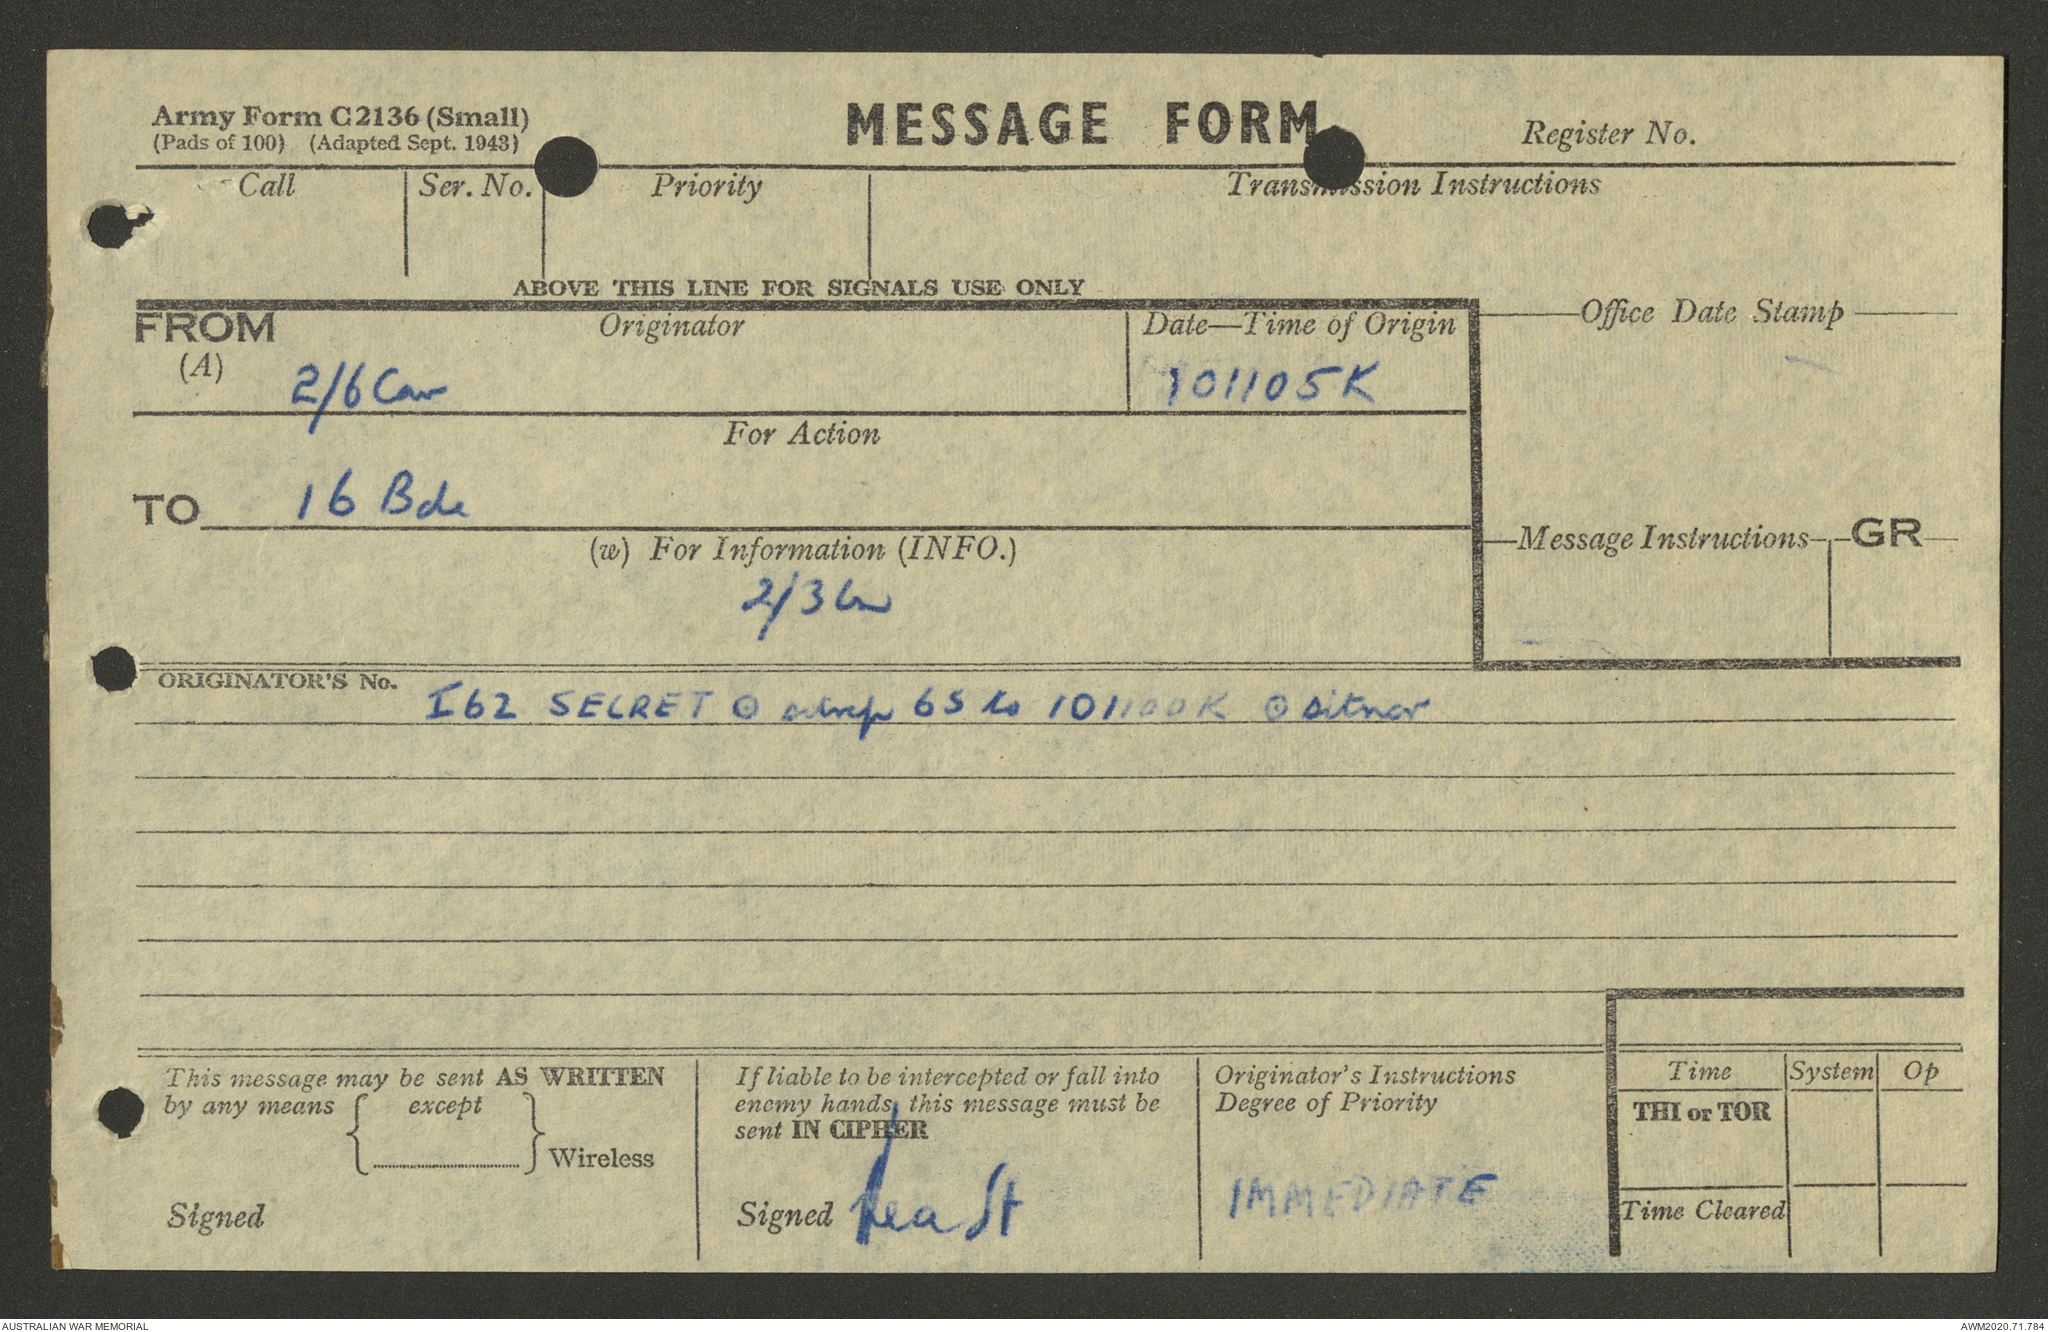 Army Form C2136 (Small)
(Pads of 100) (Adapted Sept. 1943)
MESSAGE FORM
Register No.
Call
Ser. No.
Priority
Transmission Instructions
ABOVE THIS LINE FOR SIGNALS USE ONLY
FROM
(A)
Originator
Date—Time of Origin
Office Date Stamp
2/6 Cav
101105K
For Action
TO
16 Bde
(w) For Information (INFO.)
Message Instructions
GR
2/3
ORIGINATOR'S No.
I62 SECRET ⊙ sitrep 65 to 101100K ⊙ sitnor
This message may be sent AS WRITTEN
by any means { except
} Wireless
Signed
If liable to be intercepted or fall into
enemy hands, this message must be
sent IN CIPHER
Signed
Originator's Instructions
Degree of Priority
IMMEDIATE
Time
System
Op
THI or TOR
Time Cleared
AUSTRALIAN WAR MEMORIAL
AWM2020.71.784